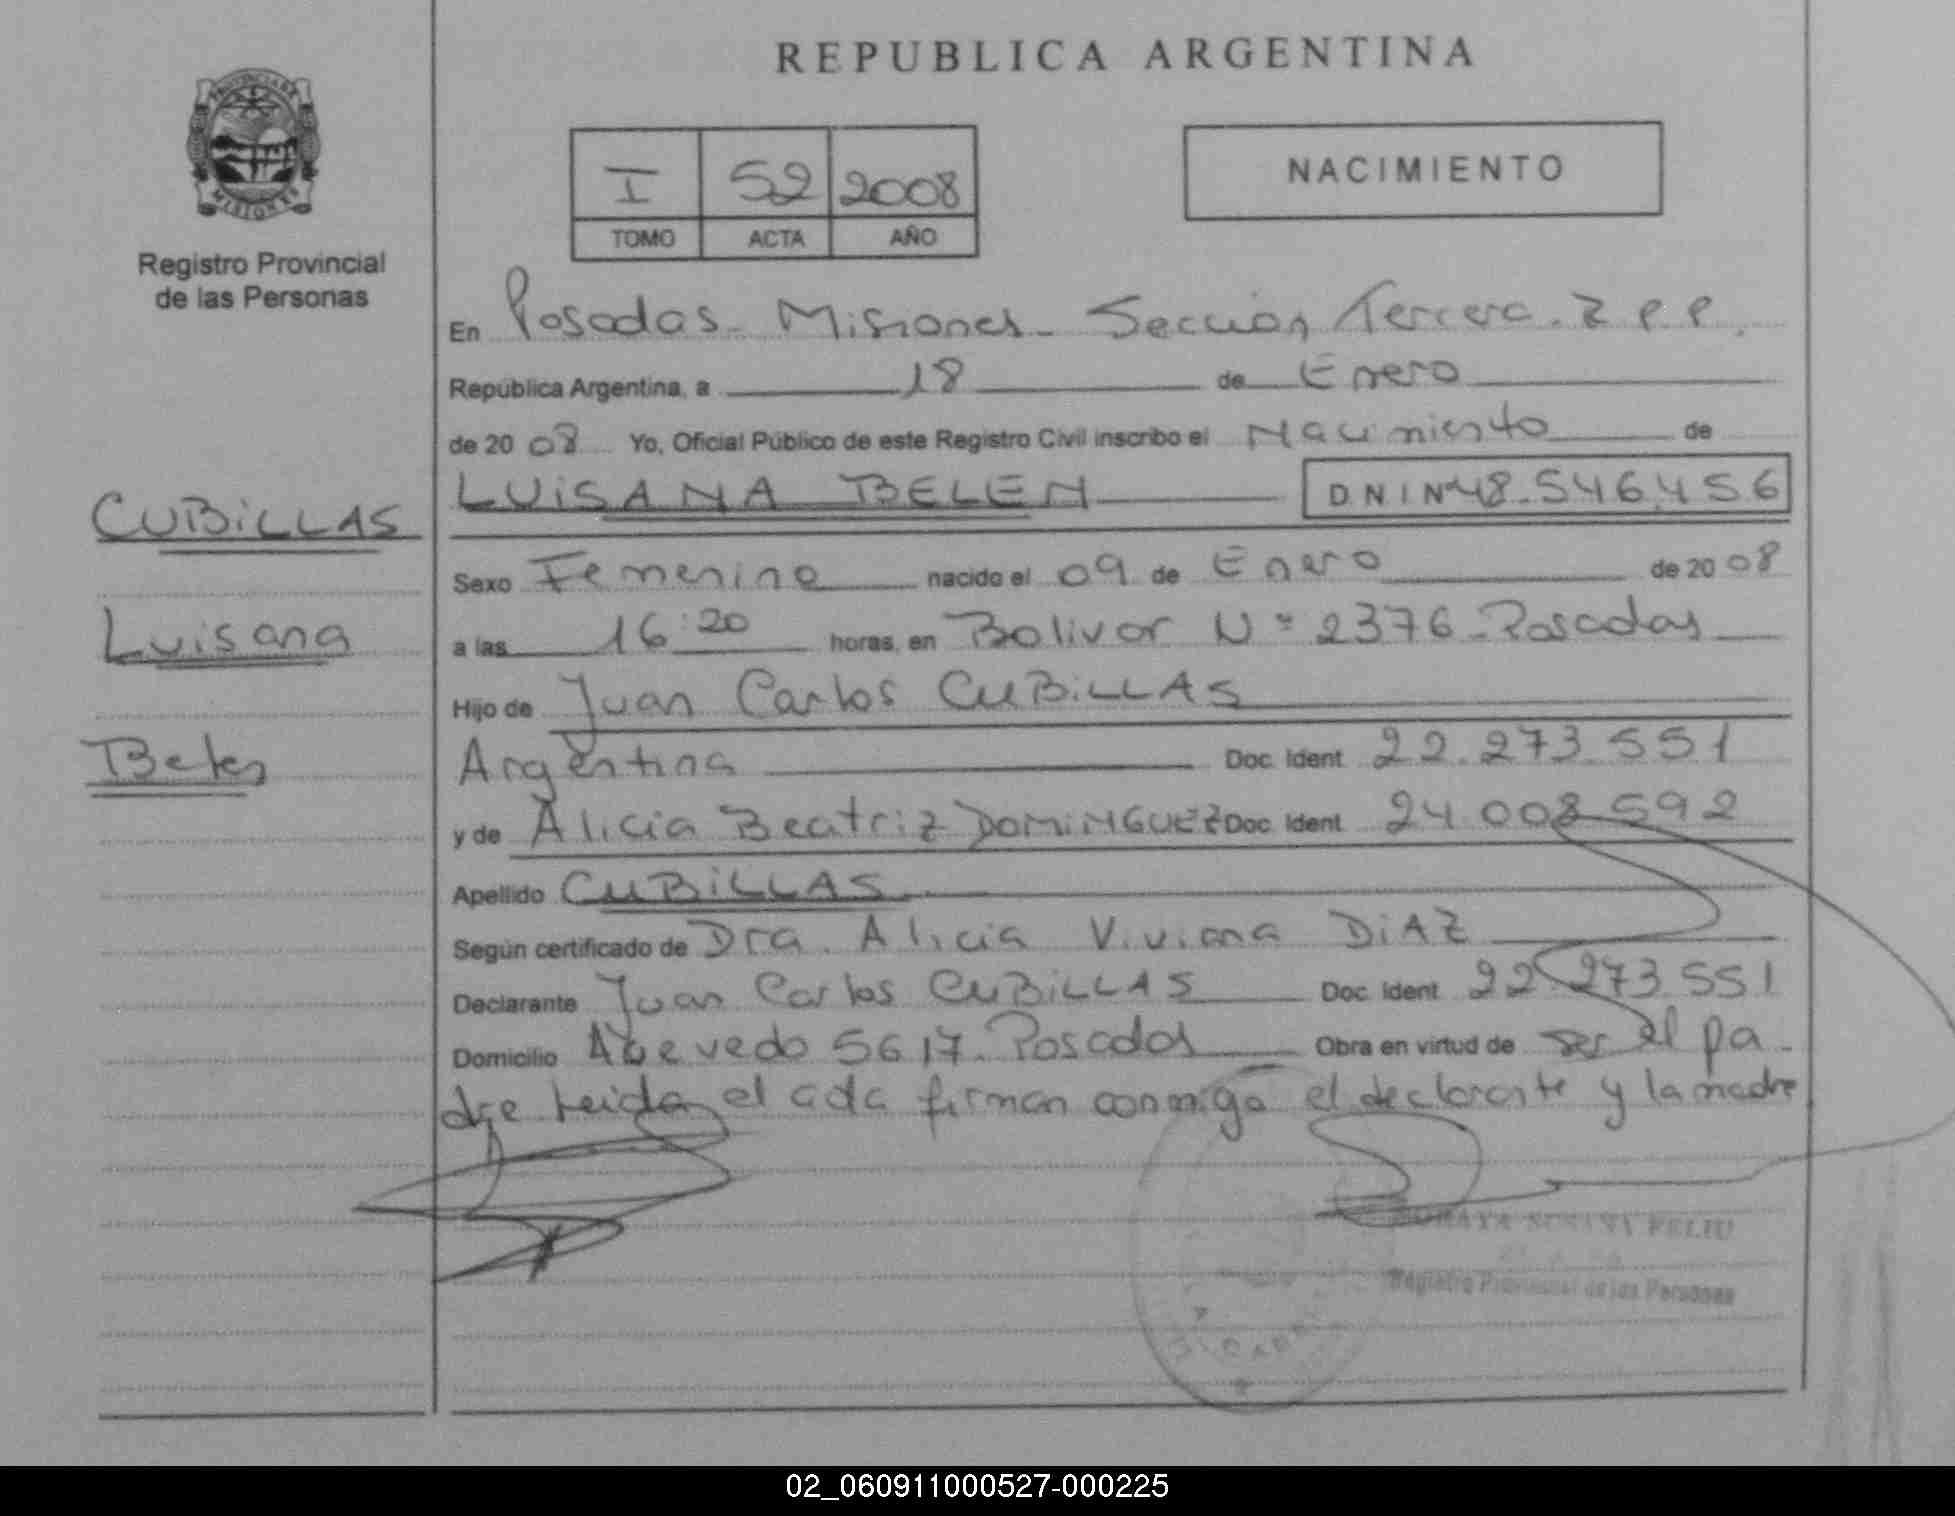 REPUBLICA ARGENTINA
PROVINCIA DE
MISIONES
Registro Provincial
de las Personas
I 52 2008
TOMO ACTA AÑO
NACIMIENTO
En Posadas - Misiones - Sección Tercera. Z P P.
República Argentina, a 18 de Enero
de 20 08 Yo, Oficial Público de este Registro Civil inscribo el Nacimiento de
LUiSANA BELEN D N I Nº 48.546.456
CUBiLLAS
Luisana
Belen
Sexo Femenino nacido el 09 de Enero de 20 08
a las 16:20 horas, en Bolivar Nº 2376 - Posadas
Hijo de Juan Carlos CUBiLLAS
Argentina Doc. Ident 22.273.551
y de Alicia Beatriz DOMiNGUEZ Doc. Ident 24 008 592
Apellido CUBiLLAS
Según certificado de Dra. Alicia Viviana DiAZ
Declarante Juan Carlos CUBiLLAS Doc. Ident 22 273 551
Domicilio 5617 - Posadas Obra en virtud de ser el pa-
dre leida el acta firman conmigo el declarante y la madre
FELIU
Registro Provincial de las Personas
02_060911000527-000225